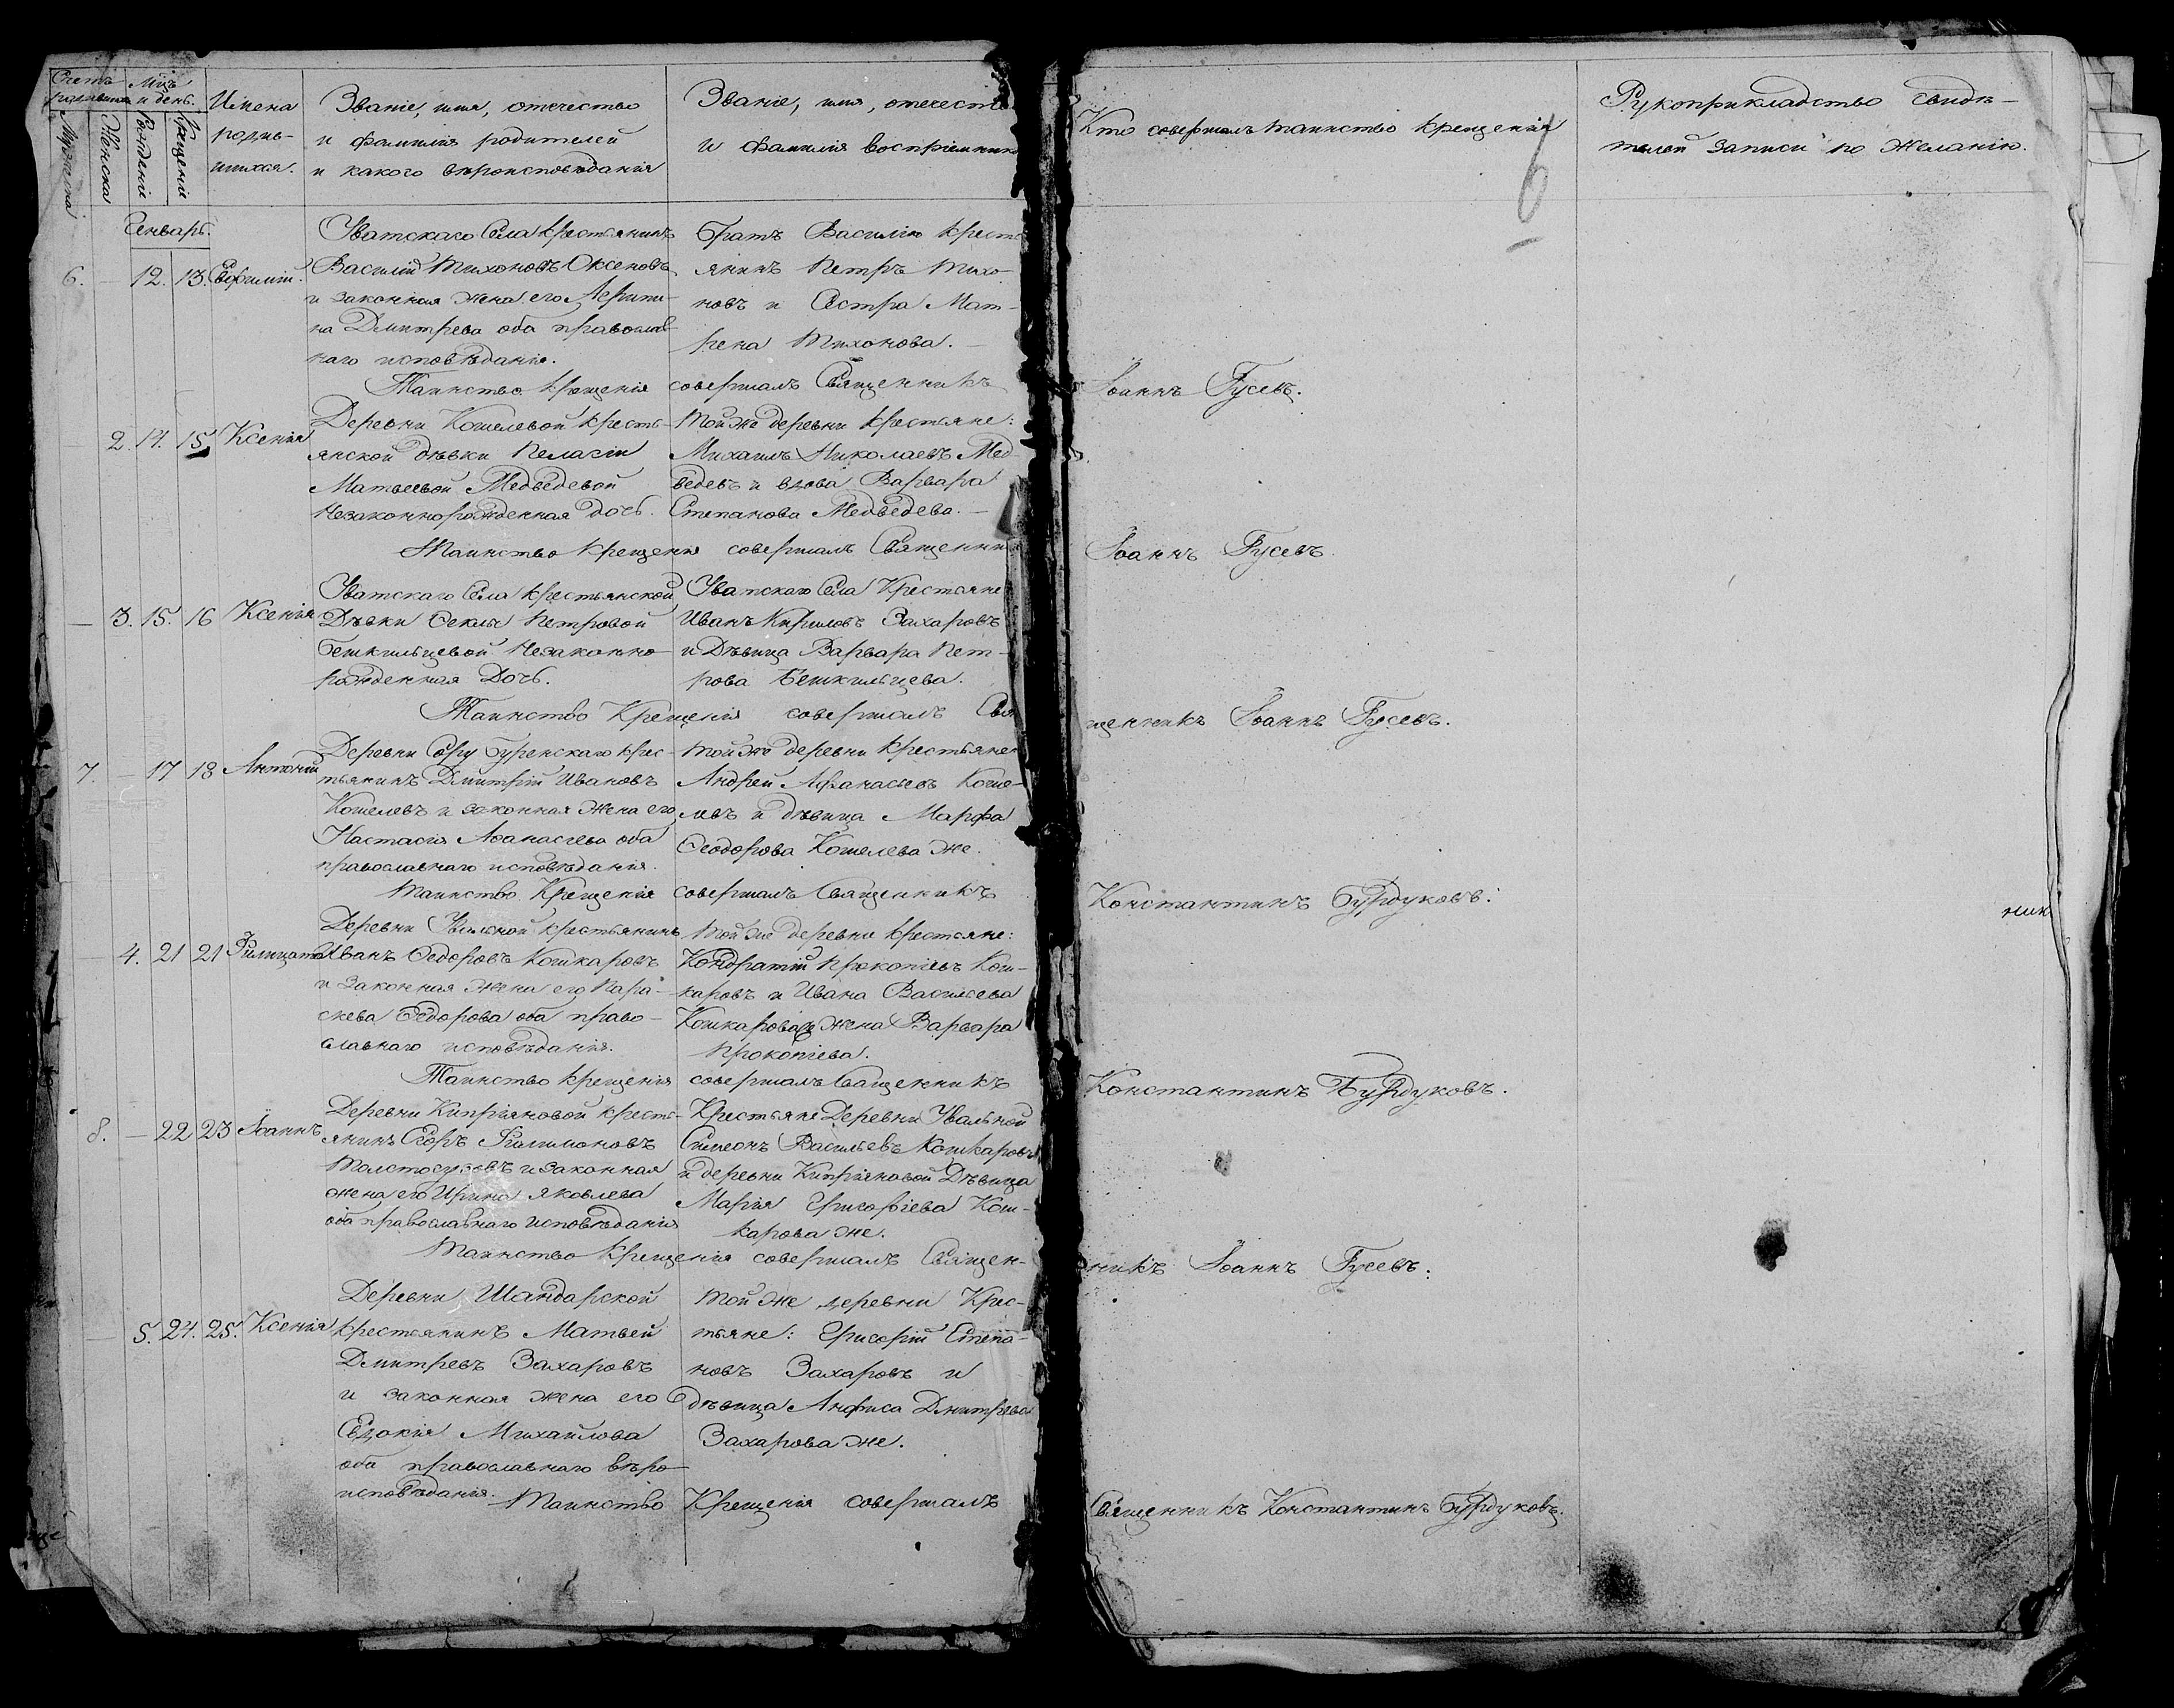 Счетъ родившихся
Мцъ и день.
Мужеска
Женска
Рожденія
Крещенія
Имена
родив-
шихся.
Званіе, имя, отчество
и фамилія родителей
и какого вѣроисповѣданія
Званіе, имя, отчество
и фамилія воспріемник
Кто совершалъ таинство крещенія
Рукоприкладство свидѣ-
телей записи по желанію.
6
Генварь.
6. — 12. 13. Евфимій.
Уватскаго Села крестьянинъ
Василій Тихоновъ Оксеновъ
и законная жена его
на Дмитрева оба православ-
наго исповѣданія.
Братъ Василію крест
янинъ Петръ Тихо-
новъ и Сестра Мат-
рена Тихонова. —
Таинство крещенія совершалъ Священникъ Іоаннъ Гусевъ.
2. 14. 15. Ксенія
Деревни Кошелевой кресть-
янской дѣвки Пелагіи
Матвеевой Медведевой
Незаконнорожденная дочь.
Тойже деревни крестьяне:
Михаилъ Николаевъ Мед-
ведевъ и вдова Варвара
Степанова Медведева. —
Таинство крещенія совершалъ Священни Іоаннъ Гусевъ.
— 3. 15. 16 Ксенія
Уватскаго Села крестьянской
Дѣвки Феклы Петровой
Бешкильцевой Незаконно-
рожденная Дочь.
Уватскаго Села Крестьяне
Иванъ Кириловъ Захаровъ
и Дѣвица Варвара Пет-
рова Бешкильцева.
Таинство Крещенія совершалъ Свя щенникъ Іоаннъ Гусевъ.
7. — 17 18 Антоній
Деревни Буренскаго крес-
тьянинъ Дмитрій Ивановъ
Кошелевъ и законная жена его
Настасія Аѳанасіева оба
православнаго исповѣданія.
Тойже деревни крестьяне
Андрей Афанасіевъ Коше-
левъ и дѣвица Марфа
Феодорова Кошелева же.
Таинство Крещенія совершалъ Священникъ Константинъ Бурдуковъ.
ник
4. 21 21 Филицата
Деревни Увальной крестьянинъ
Иванъ Федоровъ Кошкаровъ
и законная жена его Пара-
скева Федорова оба право-
славнаго исповѣданія.
Тойже деревни крестьяне:
Кондратій Прокопіевъ Кош-
каровъ и Ивана Васильева
Кошкарова жена Варвара
Прокопіева.
Таинство крещенія совершалъ Священникъ Константинъ Бурдуковъ.
8. — 22 23 Іоаннъ
Деревни Кипріяновой кресть-
янинъ Егоръ Филимоновъ
Толстогузовъ и законная
жена его Ирина Яковлева
оба православнаго исповѣданія
Крестьяне Деревни Увальной
Симеонъ Васильевъ Кошкаровъ
и деревни Кипріяновой Дѣвица
Марія Григоріева Кош-
карова же.
Таинство крещенія совершалъ Священ- никъ Іоаннъ Гусевъ.
— 5. 24. 25. Ксенія
Деревни Шандарской
крестьянинъ Матвей
Дмитревъ Захаровъ
и законная жена его
Евдокія Михайлова
оба православнаго вѣро-
исповѣданія.
Той же деревни Крес-
тьяне: Григорій Степа-
новъ Захаровъ и
дѣвица Анфиса Дмитрева
Захарова же.
Таинство Крещенія совершалъ Священникъ Константинъ Бурдуковъ.